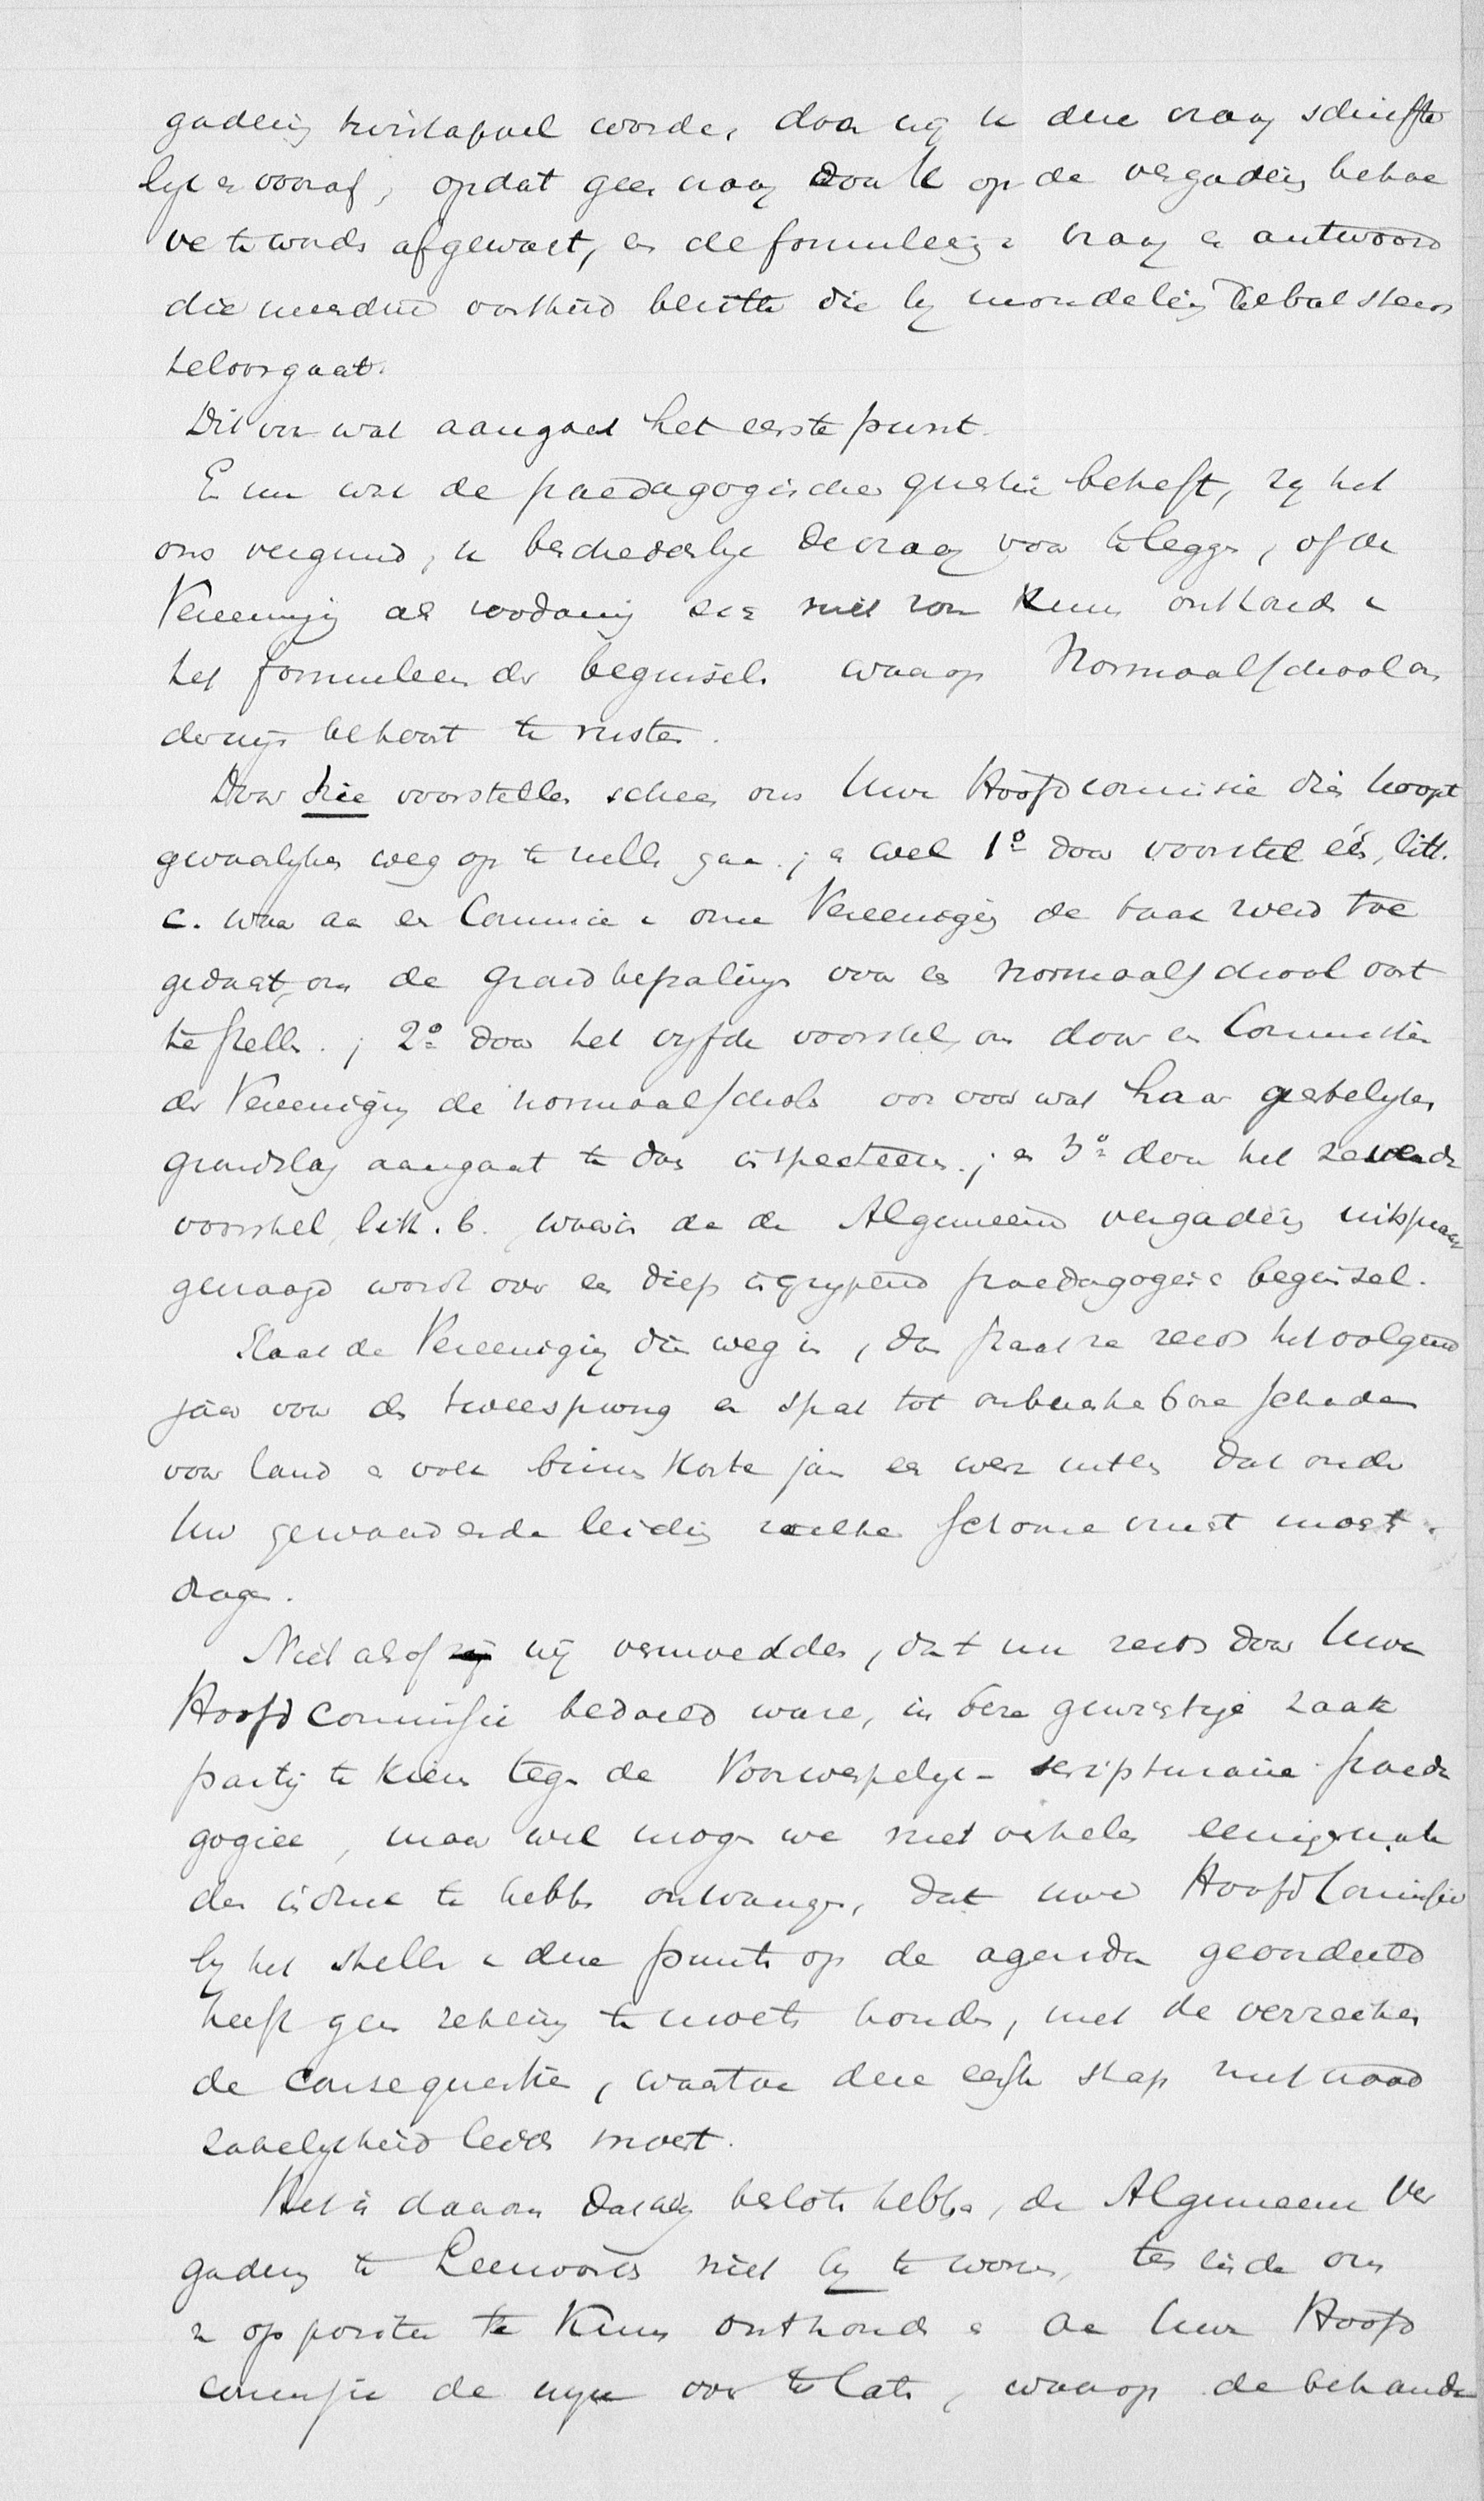 gadering twistappel worde, doen wij U deze vraag schrifte
lijk en vooraf, opdat geen vraag door U op de vergadering behoe
ve te worden afgewacht, en de formuleering van vraag en antwoord
die meerdere vastheid bezitte die bij mondeling debat steeds
teloorgaat.
Dit voor wat aangaat het eerste punt.
En nu wat de paedagogische questie betreft, zij het
ons vergund, U bescheidenlijk de vraag voor te leggen, of de
Vereeniging als zoodanig zich niet zou kunnen onthouden van
het formuleeren der beginselen waarop Normaalschoolon
derwijs behoort te rusten.
Door drie voorstellen scheen ons Uwe Hoofdcommissie dien hoogst
gevaarlijken weg op te willen gaan; en wel 1º door voorstel één, litt.
c. waar aan een Commissie van onze Vereeniging de taak werd toe
gedacht, om de Grondbepalingen voor een normaalschool vast
te stellen; 2º door het vijfde voorstel, om door een Commissie
der Vereeniging de normaalschole ook voor wat haar geestelijken
grondslag aangaat te doen inspecteeren; en 3º door het zevende
voorstel, litt. b. waarin van de Algemeene vergadering uitspraak
gevraagd wordt over een diep ingrijpend paedagogisch beginsel.
Slaat de Vereeniging dien weg in, dan staat ze reeds het volgend
jaar voor den tweesprong en spat tot onberekenbare schade
voor land en volk binnen korte jaren een werk uiteen dat onder
Uw gewaardeerde leiding zulke schoone vrucht moest
dragen.
Niet alsof wij vermoedden, dat nu reeds door Uwe
Hoofdcommissie bedoeld ware, in deze gewichtige zaak
partij te kiezen tegen de Voorwerpelijk-scripturaire paeda
gogiek, maar wel mogen we niet verhelen eenigermate
den indruk te hebben ontvangen, dat uwe Hoofdcommissie
bij het stellen van deze punten op de agenda geoordeeld
heeft geen rekening te moeten houden, met de verreiken
de consequentiën, waartoe deze eerste stap met nood
zakelijkheid leiden moest.
Het is daarom dat wij besloten hebben, de Algemeene Ver
gadering te Leeuwarden niet bij te wonen, ten einde ons
van oppositie te kunnen onthouden en aan Uwe Hoofd
commissie de wijze over te laten, waarop de behande